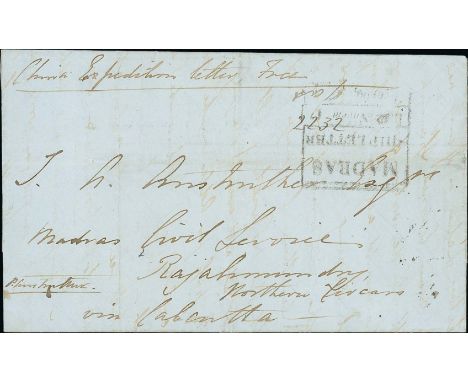 China Expedition letter Free
2232
MADRAS
SHIP LETTER
T. A. Anstruther Esqre
Madras Civil Service
Rajahmundry
Northern Circars
via Calcutta